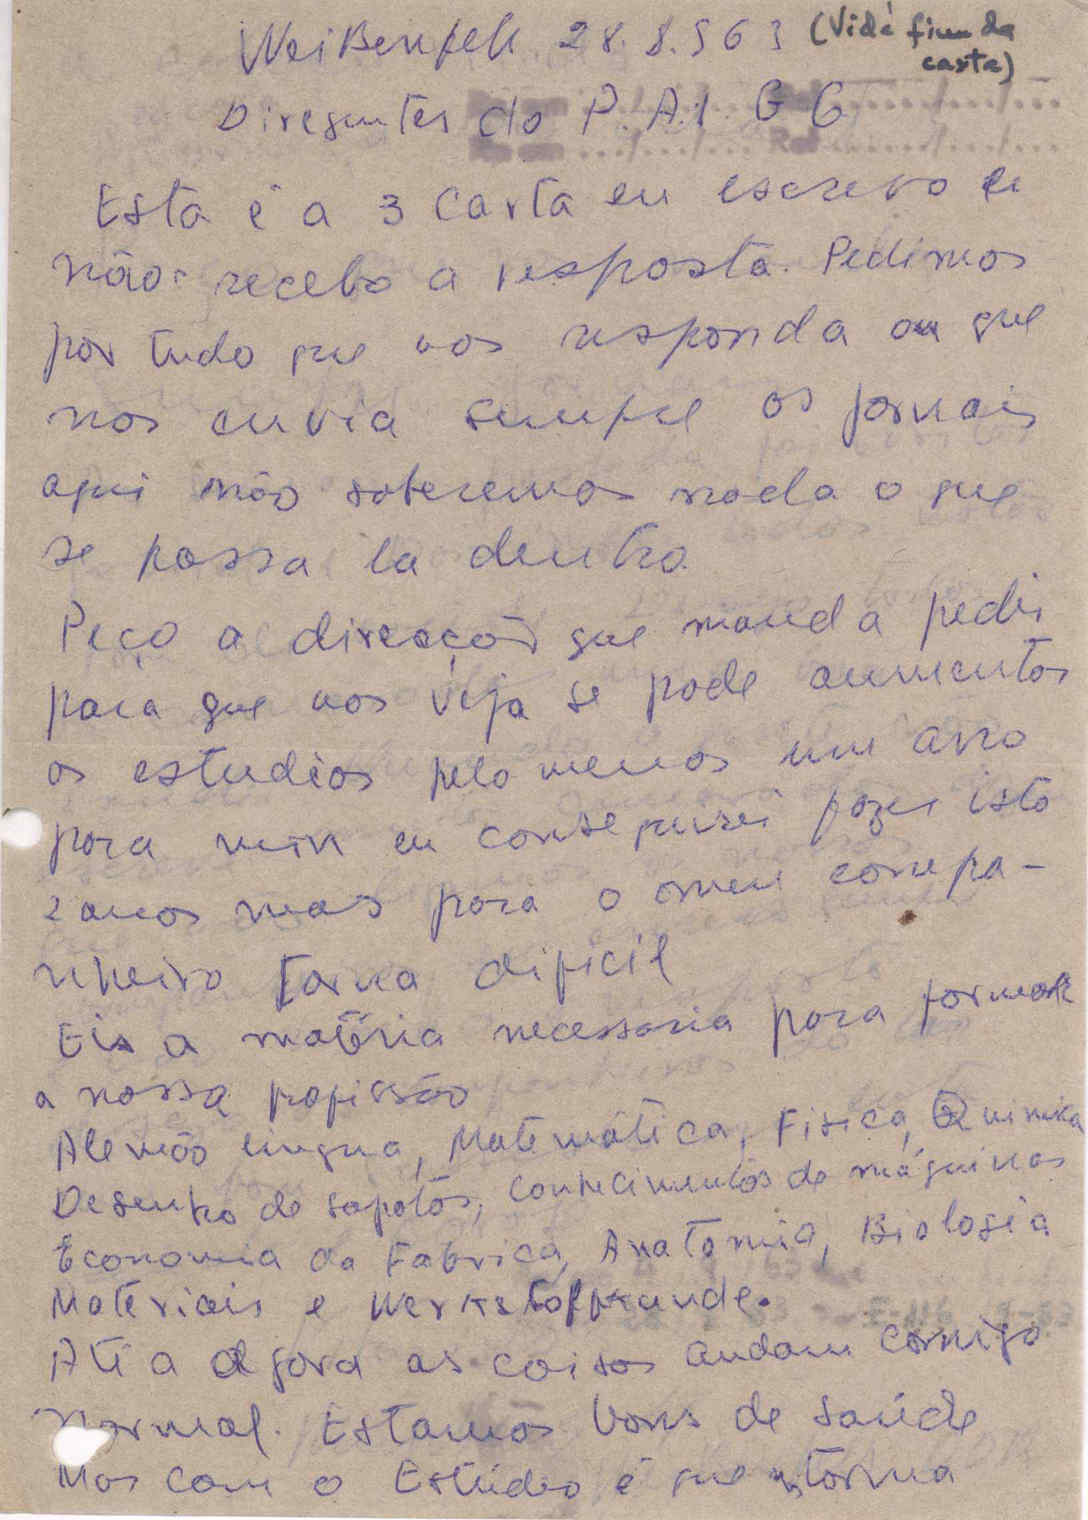 Weißenfels 28.8.963 (Vidé fim da
carta)
Diregentes do P.A.I G C
Esta é a 3 carta eu escrevo e
não recebo a resposta. Pedimos
por tudo que nos responda ou que
nos envia sempre os jornais
aqui não saberemos nada o que
se passa la dentro.
Peço a direcção que manda pedir
para que nos veja se pode aumentos
os estudios pelo menos um ano
para mim eu conseguirei fazer isto
2 anos mas para o omeu compa-
nheiro torna dificil
Eis a matéria necessaria para formar
a nossa profissão
Alemão lingua, Matemática, Fisica, Quimica
Desenho de sapatos, Conhecimentos de máquinas
Economia da Fabrica, Anatomia, Biologia
Materiais e Werkstoffkunde.
Até a agora as coisas andam comigo
Normal. Estamos bons de saúde
Mas com o Estúdeo é que torna